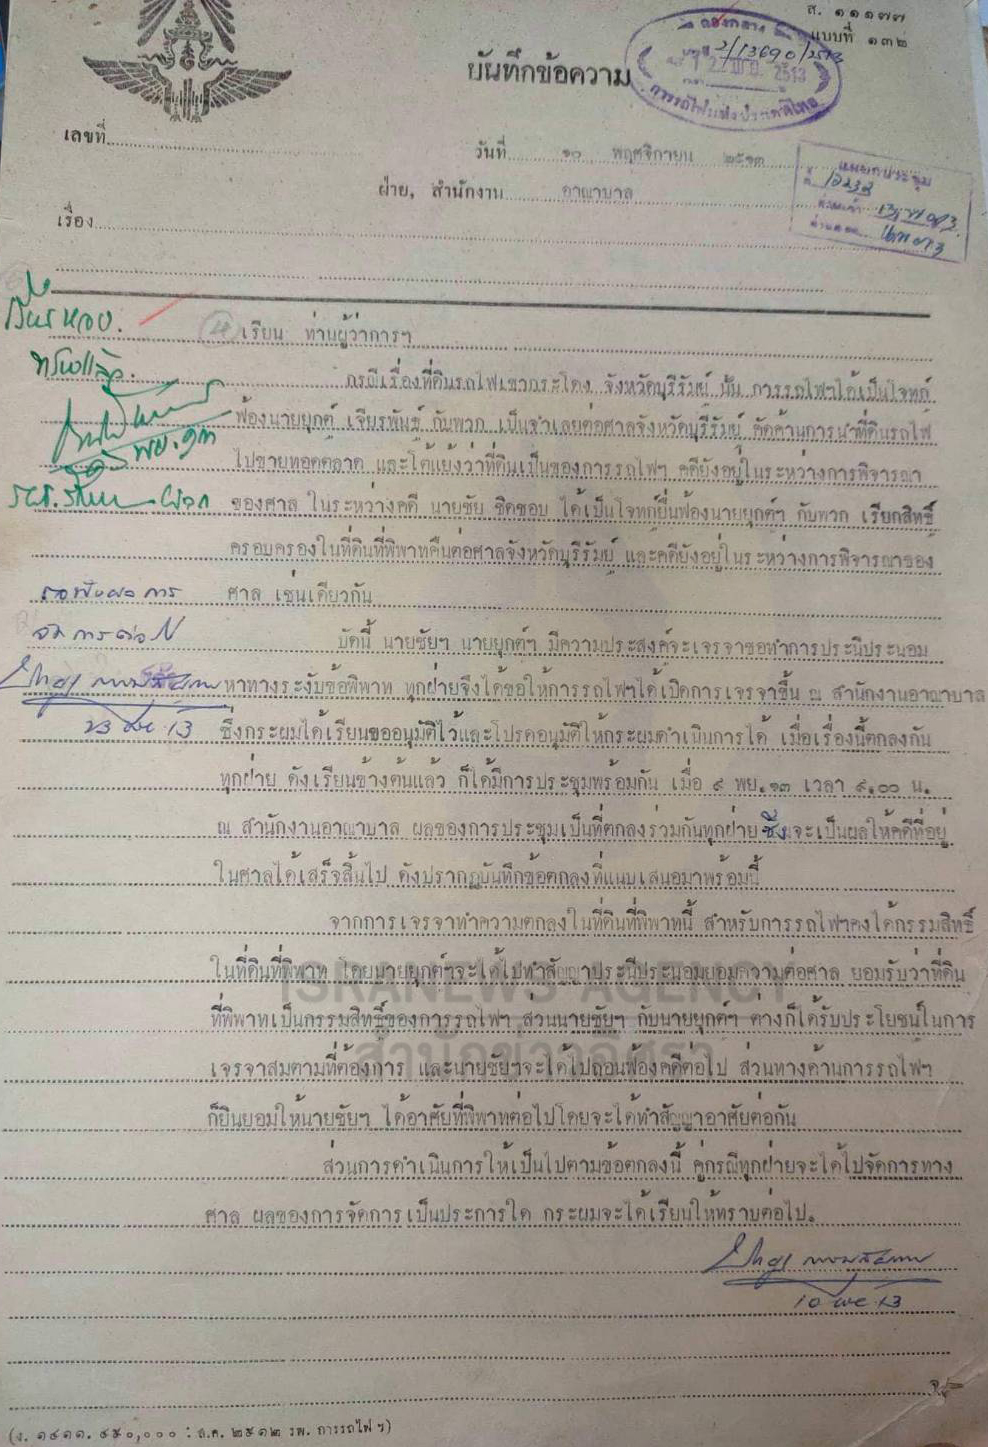 ส. ๑๑๑๗๗
แบบที่ ๑๓๒
กองกลาง
2/13690/2513
12 พ.ย. 2513
การรถไฟแห่งประเทศไทย
บันทึกข้อความ
เลขที่
วันที่ ๑๐ พฤศจิกายน ๒๕๑๓
ฝ่าย, สำนักงาน อาณาบาล
เรื่อง
แผนกประชุม
ที่
เรียน ท่านผู้ว่าการฯ
ทราบแล้ว.
กรณีเรื่องที่ดินรถไฟเขากระโดง จังหวัดบุรีรัมย์ นั้น การรถไฟฯได้เป็นโจทก์
ฟ้องนายยุกต์ เจียรพันธ์ กับพวก เป็นจำเลยต่อศาลจังหวัดบุรีรัมย์ คัดค้านการนำที่ดินรถไฟ
พย. ๑๓
ไปขายทอดตลาด และโต้แย้งว่าที่ดินเป็นของการรถไฟฯ คดียังอยู่ในระหว่างการพิจารณา
ของศาล ในระหว่างคดี นายชัย ชิดชอบ ได้เป็นโจทก์ยื่นฟ้องนายยุกต์ฯ กับพวก เรียกสิทธิ์
ครอบครองในที่ดินที่พิพาทคืนต่อศาลจังหวัดบุรีรัมย์ และคดียังอยู่ในระหว่างการพิจารณาของ
ศาล เช่นเดียวกัน
รอฟังผลการ
จัดการต่อไป
บัดนี้ นายชัยฯ นายยุกต์ฯ มีความประสงค์จะเจรจาขอทำการประนีประนอม
หาทางระงับข้อพิพาท ทุกฝ่ายจึงได้ขอให้การรถไฟฯได้เปิดการเจรจาขึ้น ณ สำนักงานอาณาบาล
23 พย 13
ซึ่งกระผมได้เรียนขออนุมัติไว้และโปรดอนุมัติให้กระผมดำเนินการได้ เมื่อเรื่องนี้ตกลงกัน
ทุกฝ่าย ดังเรียนข้างต้นแล้ว ก็ได้มีการประชุมพร้อมกัน เมื่อ ๙ พย.๑๓ เวลา ๙.๐๐ น.
ณ สำนักงานอาณาบาล ผลของการประชุมเป็นที่ตกลงร่วมกันทุกฝ่าย ซึ่งจะเป็นผลให้คดีที่อยู่
ในศาลได้เสร็จสิ้นไป ดังปรากฏบันทึกข้อตกลงที่แนบเสนอมาพร้อมนี้
จากการเจรจาทำความตกลงในที่ดินที่พิพาทนี้ สำหรับการรถไฟฯคงได้กรรมสิทธิ์
ในที่ดินที่พิพาท โดยนายยุกต์ฯจะได้ไปทำสัญญาประนีประนอมยอมความต่อศาล ยอมรับว่าที่ดิน
ISRANEWS AGENCY
ที่พิพาทเป็นกรรมสิทธิ์ของการรถไฟฯ ส่วนนายชัยฯ กับนายยุกต์ฯ ต่างก็ได้รับประโยชน์ในการ
สำนักข่าวอิศรา
เจรจาสมตามที่ต้องการ และนายชัยฯจะได้ไปถอนฟ้องคดีต่อไป ส่วนทางด้านการรถไฟฯ
ก็ยินยอมให้นายชัยฯ ได้อาศัยที่พิพาทต่อไปโดยจะได้ทำสัญญาอาศัยต่อกัน
ส่วนการดำเนินการให้เป็นไปตามข้อตกลงนี้ คู่กรณีทุกฝ่ายจะได้ไปจัดการทาง
ศาล ผลของการจัดการเป็นประการใด กระผมจะได้เรียนให้ทราบต่อไป.
10 พย 13
(ง. ๑๔๑๑. ๔๕๐,๐๐๐ : ส.ค. ๒๕๑๒ รพ. การรถไฟ ฯ)